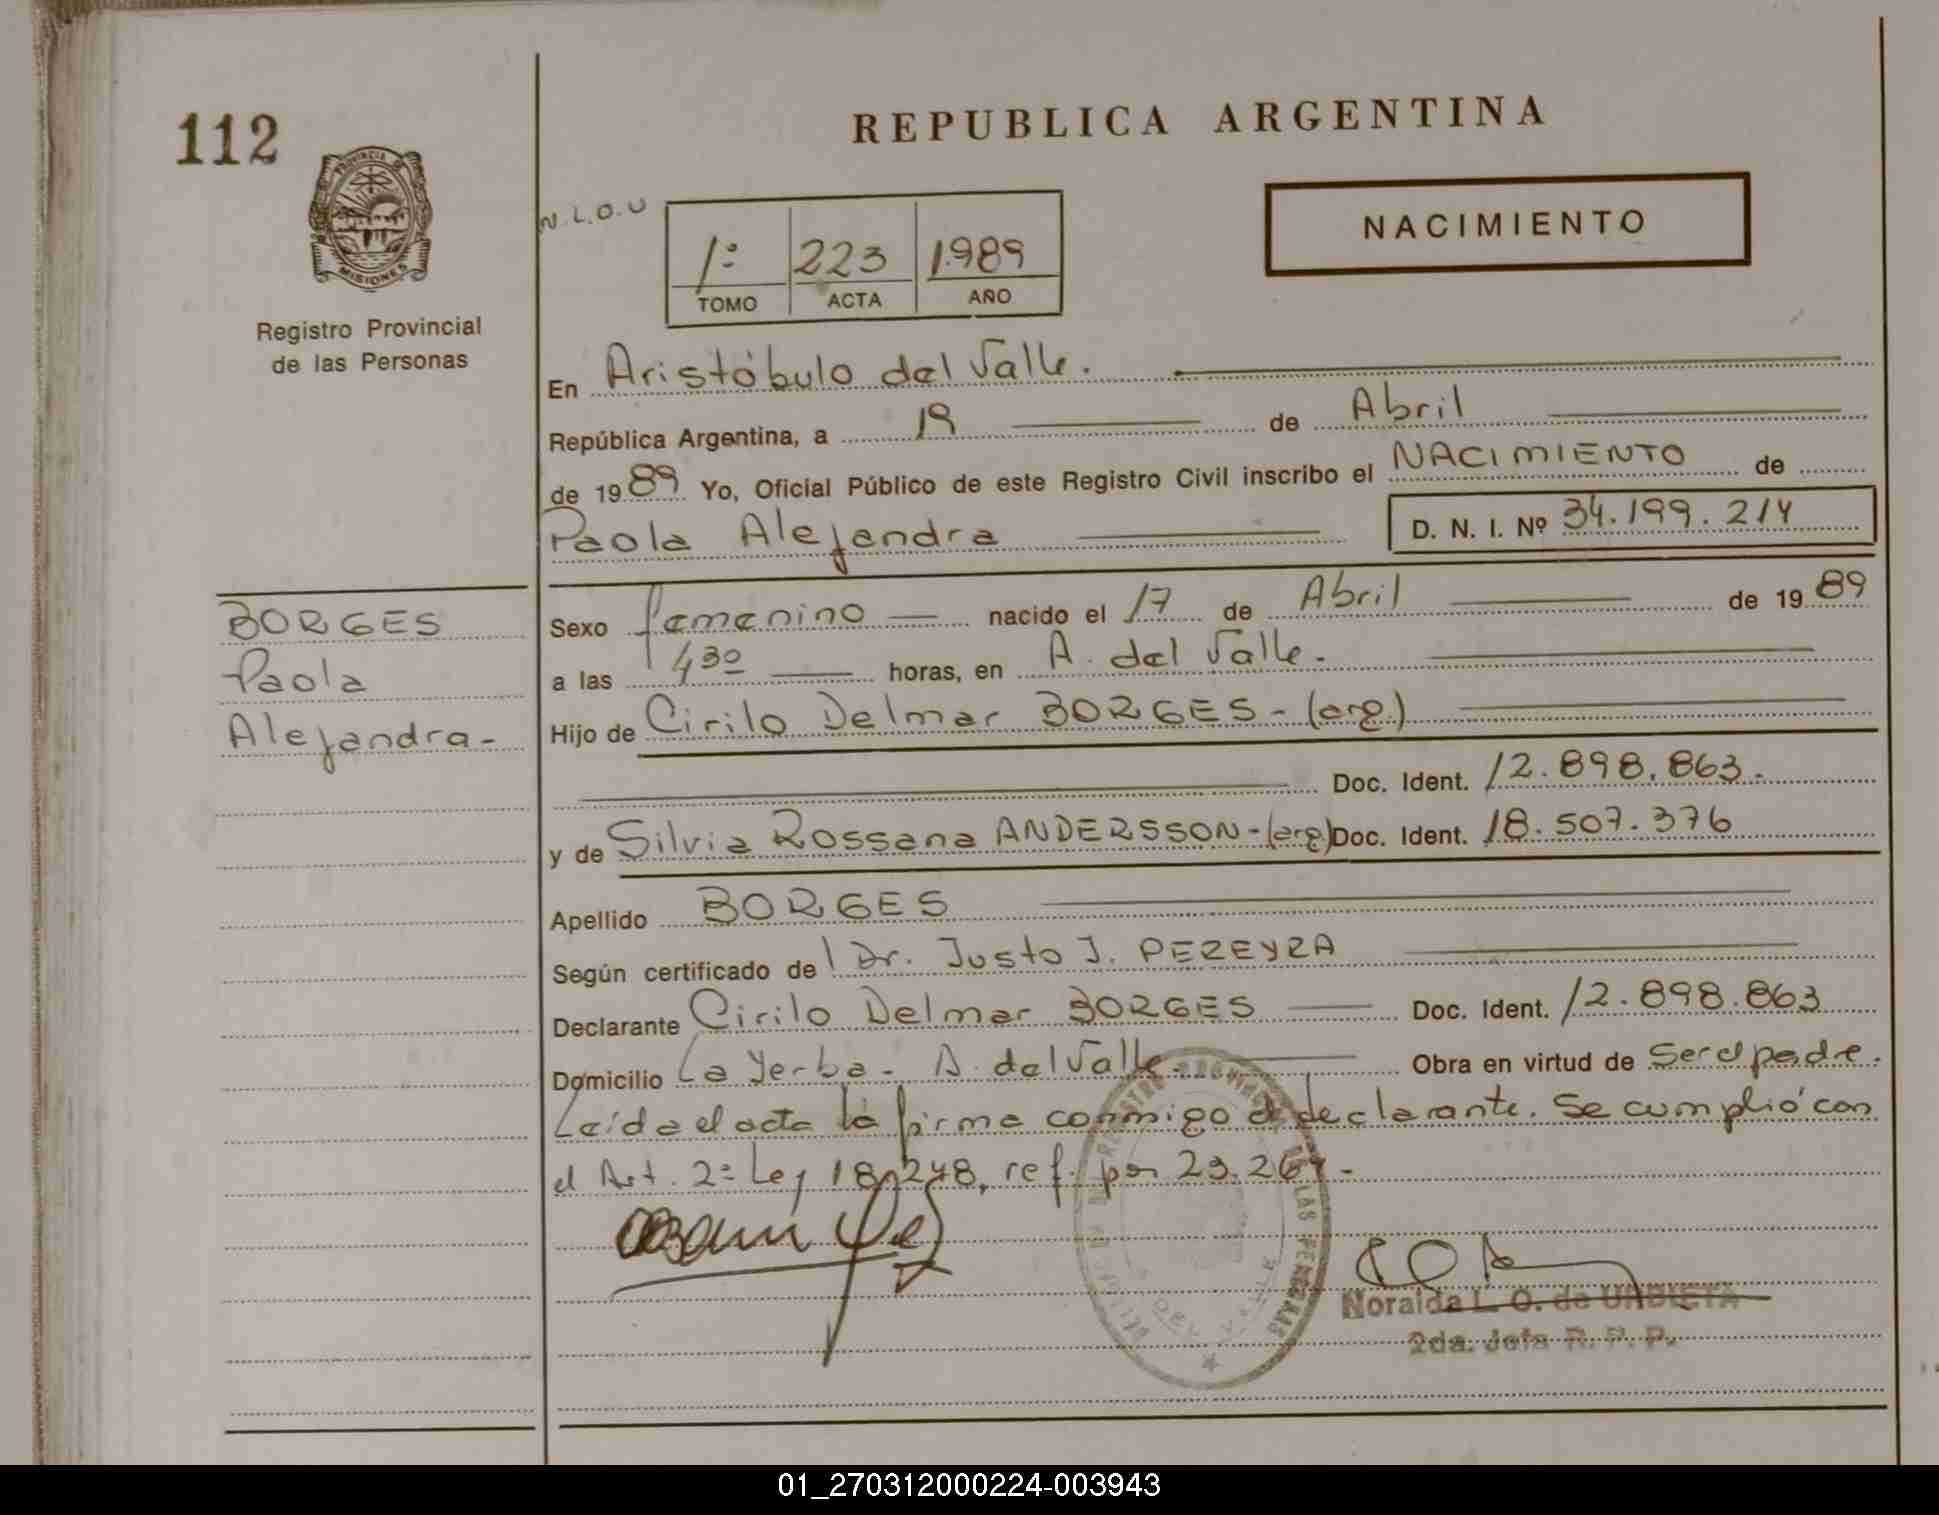 112
PROVINCIA DE
MISIONES
Registro Provincial
de las Personas
REPUBLICA ARGENTINA
N.L.O.U
NACIMIENTO
1º 223 1.989
TOMO ACTA AÑO
En Aristóbulo del Valle.
República Argentina, a 19 de Abril
de 1989 Yo, Oficial Público de este Registro Civil inscribo el NACIMIENTO de
Paola Alejandra D. N. I. Nº 34.199.214
BORGES
Paola
Alejandra-
Sexo femenino nacido el 17 de Abril de 1989
a las 4 30 horas, en A. del Valle.
Hijo de Cirilo Delmar BORGES - (arg.)
Doc. Ident. 12.898.863.
y de Silvia Rossana ANDERSSON-(arg) Doc. Ident. 18.507.376
Apellido BORGES
Según certificado de Dr. Justo J. PEREYRA
Declarante Cirilo Delmar BORGES Doc. Ident. 12.898.863
Domicilio La Yerba - A. del Valle Obra en virtud de ser el padre.
Leída el acta la firma conmigo el declarante. Se cumplió con
el Art. 2º Ley 18.248, ref. por 23.264-
Noralda L. O. de URDIETA
2da. Jefa R. P. P.
01_270312000224-003943